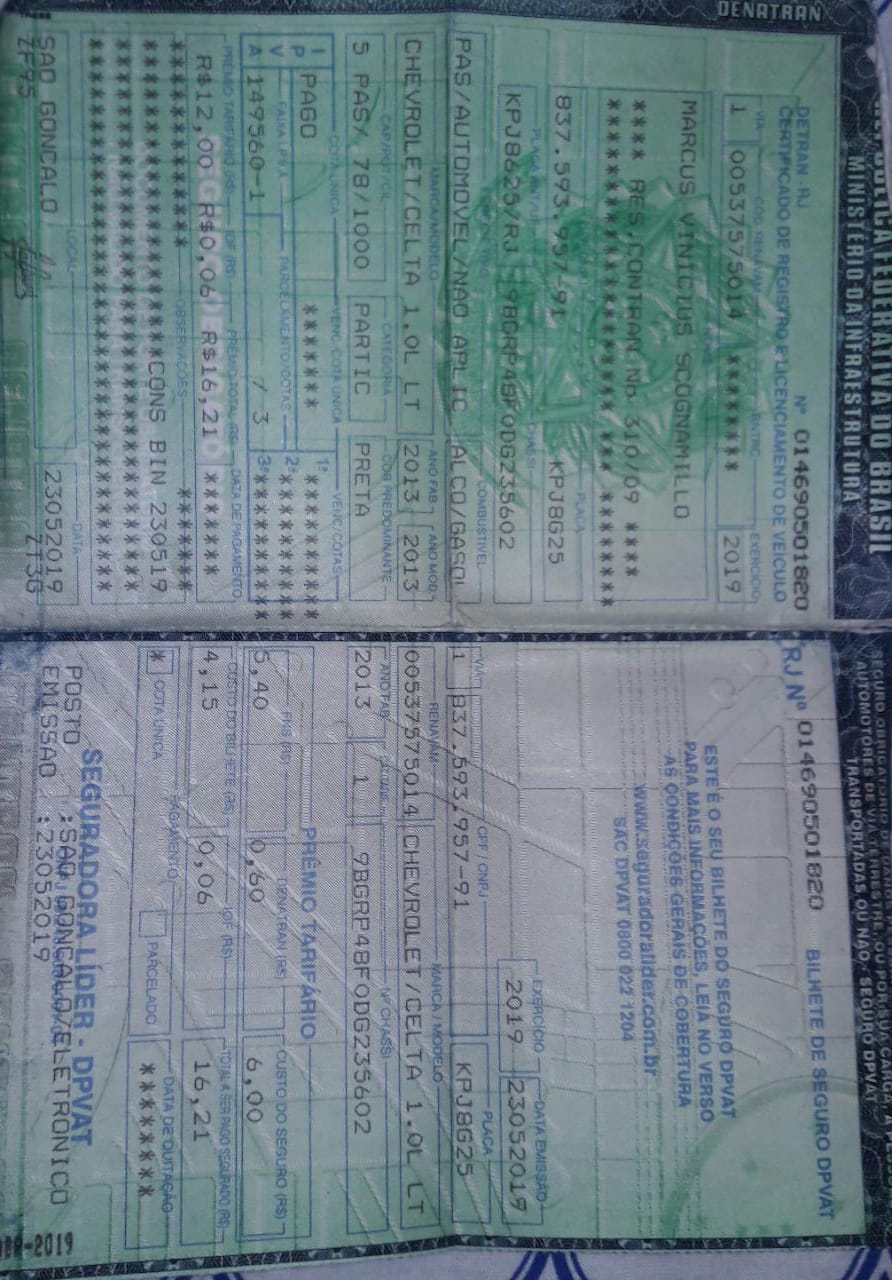 DENATRAN
REPÚBLICA FEDERATIVA DO BRASIL
MINISTÉRIO DA INFRAESTRUTURA
DETRAN - RJ Nº 014690501820
CERTIFICADO DE REGISTRO E LICENCIAMENTO DE VEÍCULO
VIA CÓD. RENAVAM EXERCÍCIO
1 00537575014 ******** 2019
MARCUS VINICIUS SCOGNAMILLO
**** RES.CONTRAN No 310/09 ****
PLACA
837.593.957-91 KPJ8G25
CHASSI
KPJ8625/RJ 9BGRP48F0DG235602
COMBUSTÍVEL
PAS/AUTOMOVEL/NAO APLIC ALCO/GASOL
MARCA/MODELO ANO FAB. ANO MOD.
CHEVROLET/CELTA 1.0L LT 2013 2013
CAP/POT/CIL CATEGORIA COR PREDOMINANTE
5 PAS/ 78/1000 PARTIC PRETA
COTA ÚNICA VENC. COTA ÚNICA VENC/COTAS
I P V A PAGO ******* 1ª *********
FAIXA I.P.V.A. PARCELAMENTO/COTAS 2ª *********
149560-1 / 3 3ª *********
PRÊMIO TARIFÁRIO (R$) IOF (R$) PRÊMIO TOTAL (R$) DATA DE PAGAMENTO
R$12,00 R$0,06 R$16,21 *******
OBSERVAÇÕES
********************CONS BIN 230519
LOCAL DATA
SAO GONCALO 23052019
ZF95 ZT3G
SEGURO DPVAT
RJ Nº 014690501820 BILHETE DE SEGURO DPVAT
ESTE É O SEU BILHETE DO SEGURO DPVAT
PARA MAIS INFORMAÇÕES, LEIA NO VERSO
AS CONDIÇÕES GERAIS DE COBERTURA
www.seguradoralider.com.br
SAC DPVAT 0800 022 1204
EXERCÍCIO DATA EMISSÃO
2019 23052019
VIA CPF / CNPJ PLACA
1 837.593.957-91 KPJ8G25
RENAVAM MARCA / MODELO
00537575014 CHEVROLET/CELTA 1.0L LT
ANO FAB. Nº CHASSI
2013 1 9BGRP48F0DG235602
PRÊMIO TARIFÁRIO
FNS (R$) DENATRAN (R$) CUSTO DO SEGURO (R$)
5,40 0,60 6,00
CUSTO DO BILHETE (R$) IOF (R$) TOTAL A SER PAGO SEGURADO (R$)
4,15 0,06 16,21
PAGAMENTO DATA DE QUITAÇÃO
* COTA ÚNICA PARCELADO ********
SEGURADORA LÍDER - DPVAT
POSTO :SAO GONCALO/ELETRONICO
EMISSAO :23052019